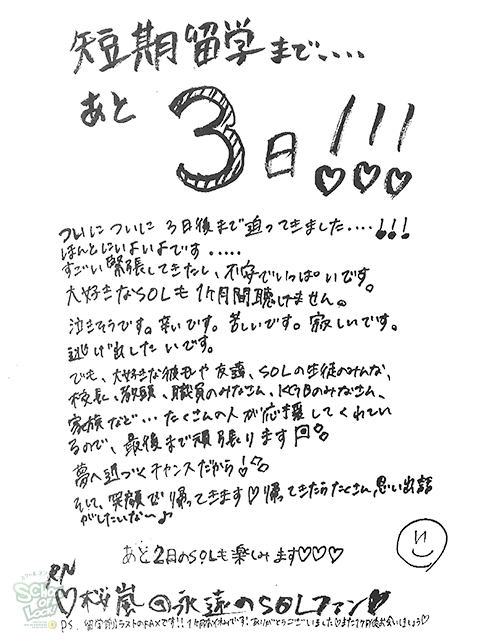 短期留学まで....
あと
3日!!!
ついについに 3日後まで迫ってきました....!!!
ほんとにいよいよです.....
すごい緊張してきたし、不安でいっぱいです。
大好きなSOLも1ヶ月間聴けません。
泣きそうです。辛いです。苦しいです。寂しいです。
逃げ出したいです。
でも、大好きな彼もや友達、SOLの生徒のみんな、
校長、教頭、職員のみなさん、KGBのみなさん、
家族など...たくさんの人が応援してくれてい
るので、最後まで頑張ります
夢へ近づくチャンスだから!
そして、笑顔で帰ってきます♡帰ってきたらたくさん思い出話
がしたいな〜♪
あと2日のSOLも楽しみます♡♡♡
RN
♡桜嵐@永遠のSOLファン♡
P.S. 留学前ラストのFAXです!!